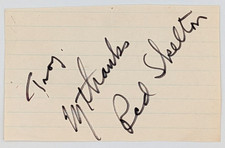 Troy.
My thanks
Red Skelton